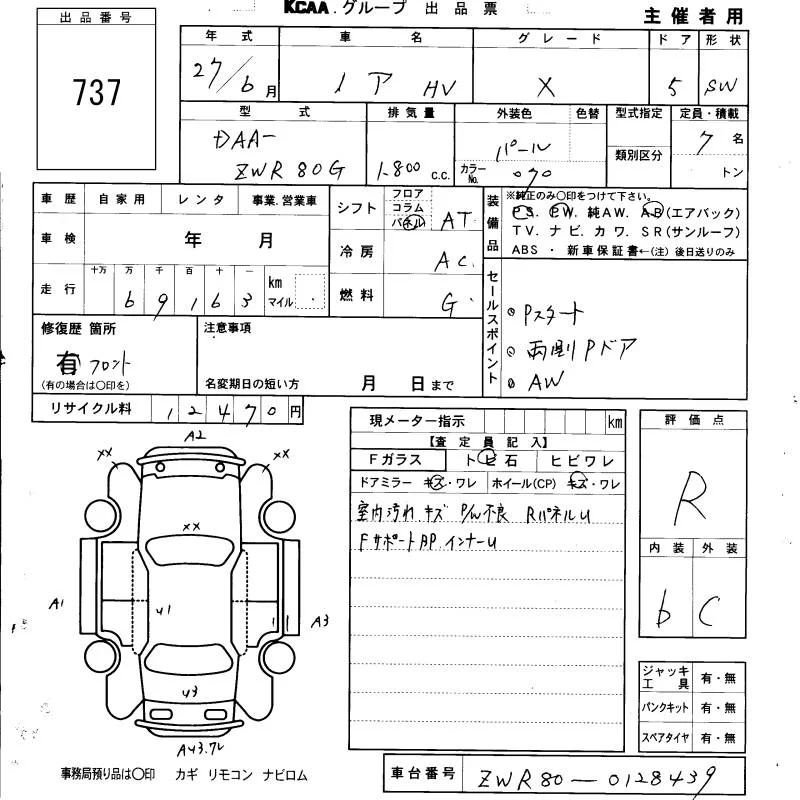 KCAA.グループ 出品票
主催者用
出品番号
737
年式 車名 グレード ドア 形状
27/6月 ノア HV X 5 SW
型式 排気量 外装色 色替 型式指定 定員・積載
DAA-
ZWR80G 1.800 c.c. パール
カラーNo. 070
類別区分
7名
トン
車歴 自家用 レンタ 事業.営業車
車検 年 月
走行 十万 万 千 百 十 一
69163 km マイル
シフト フロア コラム パネル AT
冷房 AC
燃料 G
装備品
※純正のみ○印をつけて下さい。
PS. PW. 純AW. AB(エアバック)
TV. ナビ. カワ. SR(サンルーフ)
ABS ・ 新車保証書←(注)後日送りのみ
セールスポイント
Pスタート
両側Pドア
AW
修復歴 箇所
有 フロント
(有の場合は○印を)
注意事項
名変期日の短い方 月 日まで
リサイクル料 12470円
現メーター指示 km
【査定員記入】
Fガラス トビ石 ヒビワレ
ドアミラー キズ・ワレ ホイール(CP) キズ・ワレ
室内汚れ キズ P/W不良 RパネルU
FサポートBP インナーU
評価点
R
内装 外装
b C
ジャッキ工具 有・無
パンクキット 有・無
スペアタイヤ 有・無
A2
XX XX
XX
A1 U1 A3
U3
事務局預り品は○印 カギ リモコン ナビロム
車台番号 ZWR80-0128439